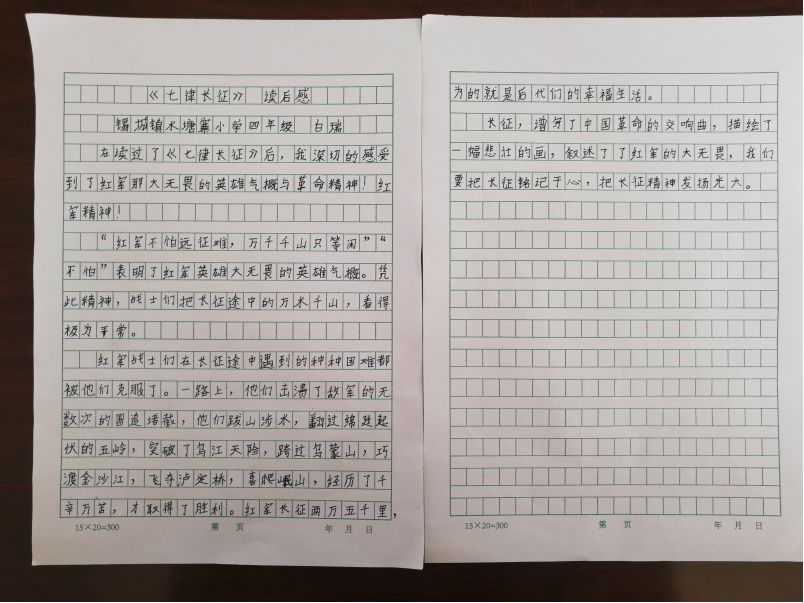 《七律长征》 读后感
锡城镇水塘寨小学四年级 白瑞
在读过了《七律长征》后，我深切的感受
到了红军那大无畏的英雄气概与革命精神！红
军精神！
“红军不怕远征难，万千千山只等闲”“
不怕”表明了红军英雄大无畏的英雄气概。凭
此精神，战士们把长征途中的万水千山，看得
极为平常。
红军战士们在长征途中遇到的种种困难都
被他们克服了。一路上，他们击溃了敌军的无
数次的围追堵截，他们跋山涉水，翻过绵延起
伏的五岭，突破了乌江天险，跨过乌蒙山，巧
渡金沙江，飞夺泸定桥，喜爬岷山，经历了千
辛万苦，才取得了胜利。红军长征两万五千里，
15×20=300 第 页 年 月 日
为的就是后代们的幸福生活。
长征，谱写了中国革命的交响曲，描绘了
一幅悲壮的画，叙述了了红军的大无畏，我们
要把长征铭记于心，把长征精神发扬光大。
15×20=300 第 页 年 月 日